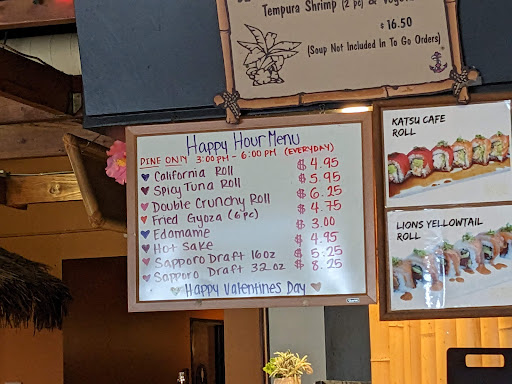 Tempura Shrimp (2 pc) &
$16.50
(Soup Not Included In To Go Orders)
Happy Hour Menu
DINE ONLY 3:00PM - 6:00PM (EVERYDAY)
California Roll $4.95
Spicy Tuna Roll $5.95
Double Crunchy Roll $6.25
Fried Gyoza (6pc) $4.75
Edamame $3.00
Hot Sake $4.95
Sapporo Draft 16oz $5.25
Sapporo Draft 32oz $8.25
Happy Valentines Day
KATSU CAFE
ROLL
LIONS YELLOWTAIL
ROLL